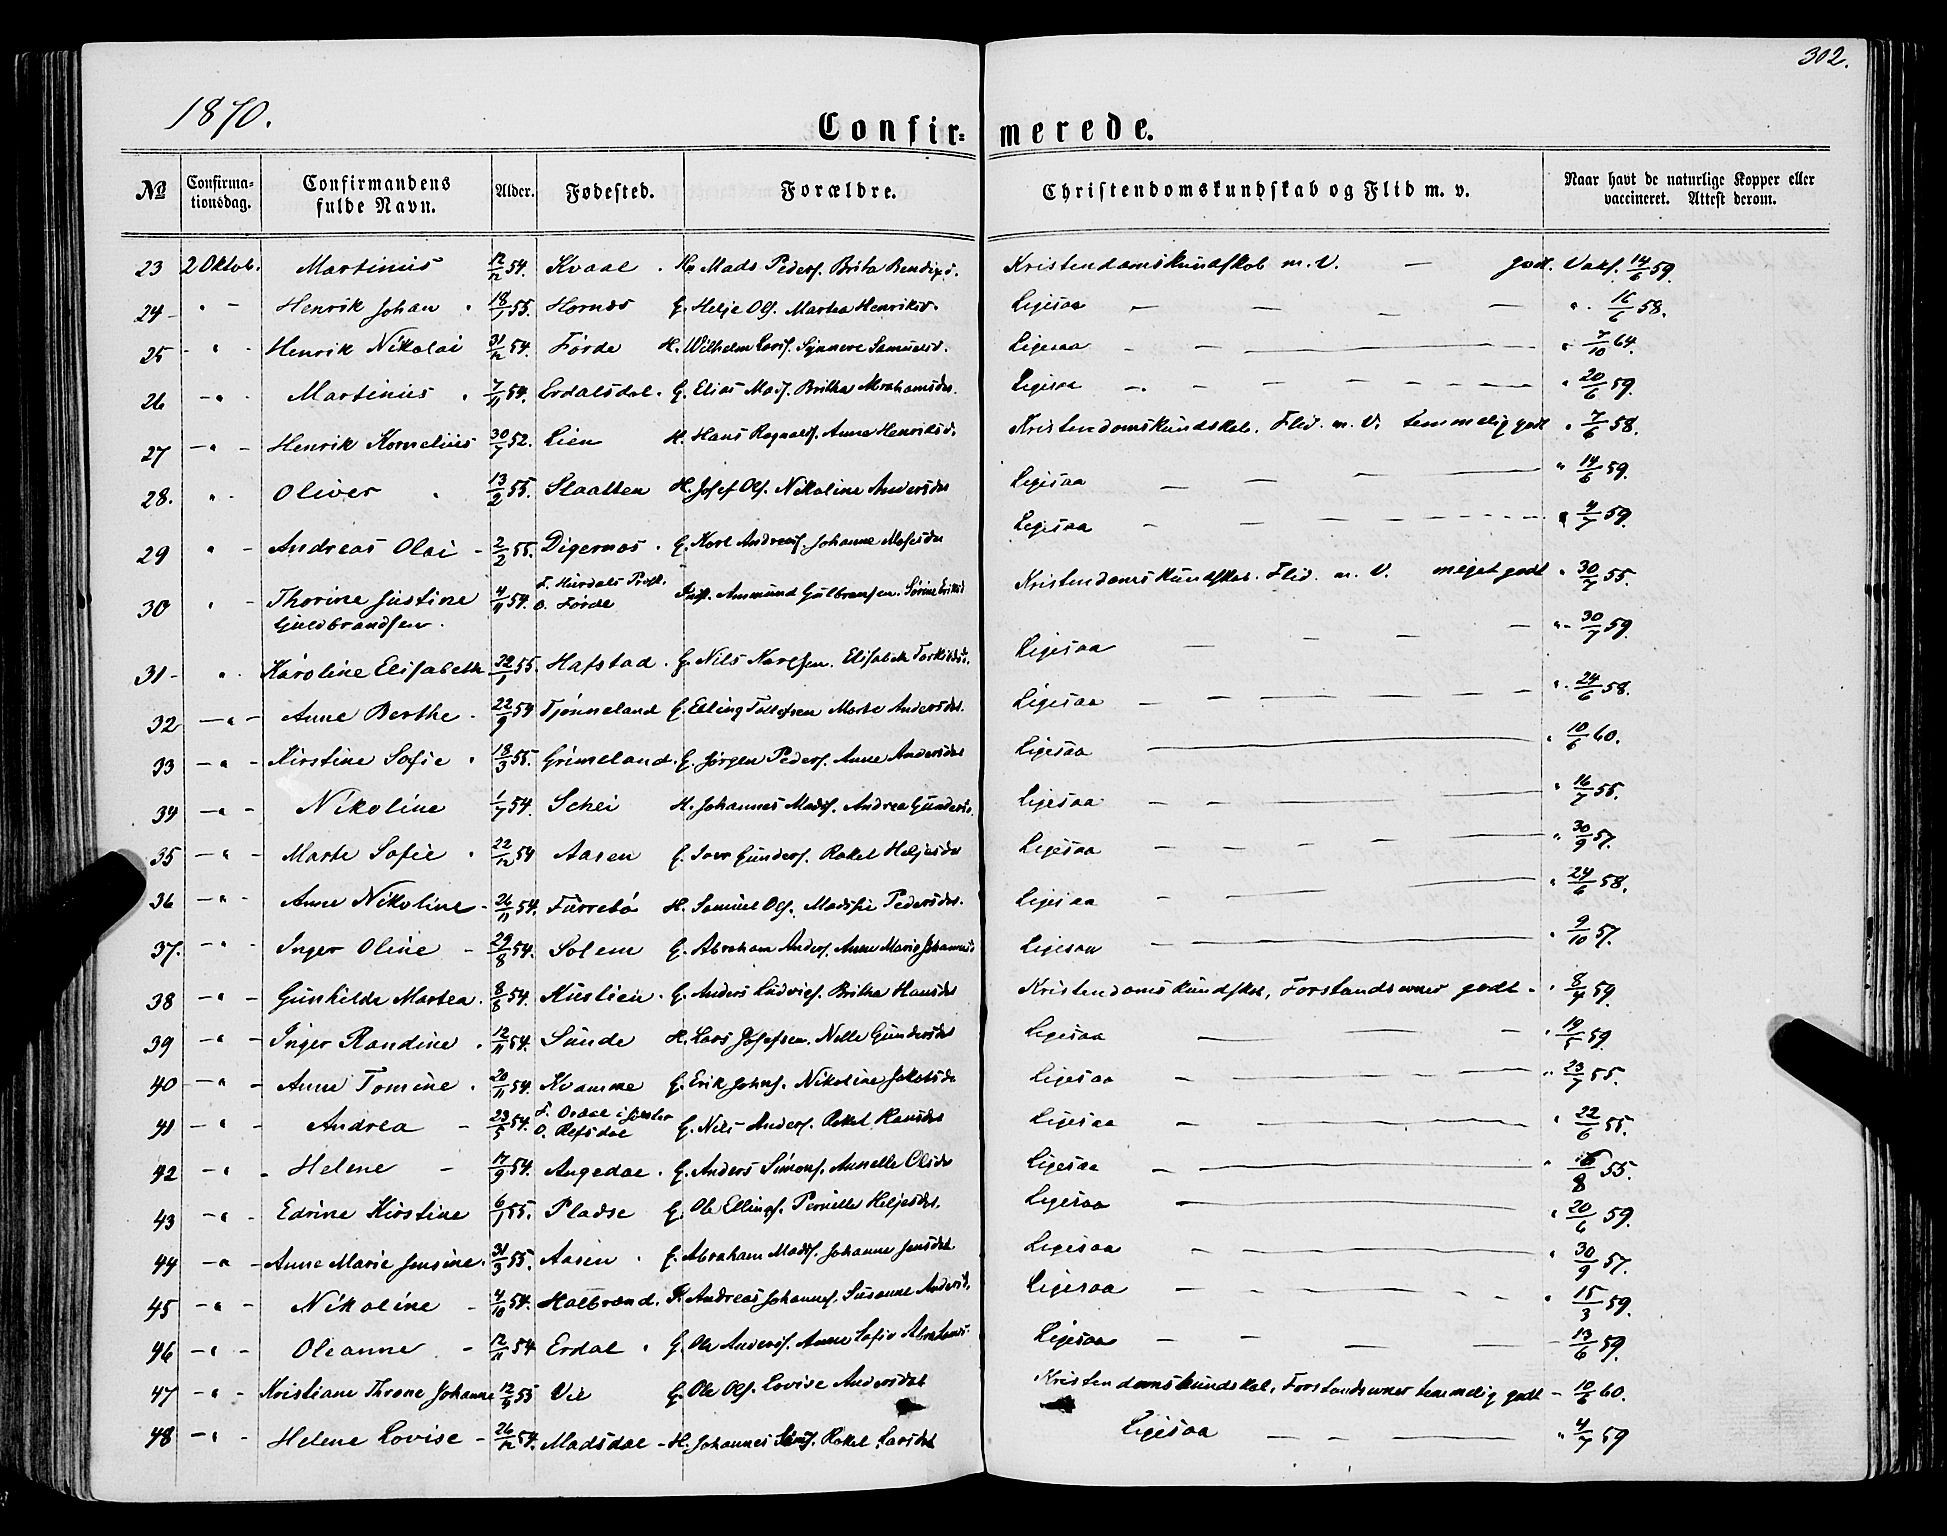 302.
1870.
Confir- merede.
No Confirmationsdag. Confirmandens fulde Navn. Alder. Fødested. Forældre. Christendomskundskab og Flid m. v. Naar havt de naturlige Kopper eller vaccineret. Attest derom.
23 2 Oktob. Martinus 12/12 54. Kvaal. Mads Peders. Brita Bendixd. Kristendomskundskab m. V. — godt. Vaks. 14/6 59.
24 - " - Henrik Johan 18/1 55. Hornes G. Helje Ols. Martea Henriksd. Ligesaa — — — — " 16/6 58.
25 - " - Henrik Nikolai 31/12 54. Førde H. Wilhelm Larss. Synneve Samuelsd. Ligesaa — — — " 7/10 64.
26 - " - Martinus 7/11 54. Erdalsdal. G. Elias Mads. Britha Abrahamsdr. Ligesaa — — — " 20/6 59.
27 - " - Henrik Kornelius 30/7 52. Lien H. Hans Ragnalds. Anne Henriksd. Kristendomskundskab. Flid. m. V. temmelig godt " 7/6 58.
28. " - Oliver 13/2 55. Slaatten H. Josef Ols. Nikoline Andersdr Ligesaa — — — " 14/6 59.
29 " - Andreas Olai - 2/2 55. Digernes. G. Karl Andreass. Johanne Mosesdr Ligesaa — — — " 4/7 59.
30 " - Thorine Justine Guldbrandsen. 4/11 54. F. Hurdals Præst. O. Førde Ammund Gulbransen. Sørine Kristendomskundskab. Flid. m. V. meget godt " 30/7 55.
31 - " - Karoline Elisabeth 22/1 55. Hafstad. G. Nils Karlsen. Elisabeth Ligesaa — — — — " 30/7 59.
32 - " - Anne Berthe. 22/9 54 Tjønneland G. Elling Tollefsen Marte Andersdr. Ligesaa — — — " 24/6 58.
33 - " - Kirstine Sofie 18/3 55. Grimeland. G. Jørgen Peders. Anne Andersdr Ligesaa — — — " 10/6 60.
34 - " - Nikoline 1/7 54. Schei H. Johannes Mads. Andrea Gundersd. Ligesaa — — — " 16/7 55.
35 - " - Marte Sofie 22/12 54 Aasen G. Iver Gunders. Rakel Heljesdr Ligesaa — — — " 30/9 57.
36 - " - Anne Nikoline - 26/11 54. Furrebø H. Samuel Ols. Madsfie Pedersdr. Ligesaa — — — " 24/6 58.
37. - " - Inger Oline - 29/8 54. Solem G. Abraham Anders. Anne Marie Johannesd. Ligesaa — — — " 9/10 57.
38 - " - Gunhilda Martea. 8/8 54. Kuslien. G. Anders Ludvigs. Britha Hansdr Kristendomskundskab, Forstandsevner godt - " 8/7 59.
39 - " - Inger Randine. 12/11 54. Sunde H. Lars Josefsen. Nille Gundersdr Ligesaa — — — " 59.
40 - " - Anne Tomine. 20/11 54. Kvamme G. Erik Johns. Nikoline Jakobsdr Ligesaa — — — " 23/7 55.
41 - " - Andrea - 23/5 54. F. i Jølster O. Refsdal G. Nils Anders. Rakel Hansdr Ligesaa — — — " 22/6 55.
42 - " - Helene - 17/9 54. Angedal. G. Anders Simons. Annelle Olsdr Ligesaa — — — " 8 55.
43 - " - Edrine Kirstine 6/1 55. Pladse G. Ole Ellings. Pernille Heljesdr. Ligesaa — — — " 20/6 59.
44 - " - Anne Marie Jensine. 31/3 55. Aasen. G. Abraham Mads. Johanne Jensdr. Ligesaa — — — " 30/9 57.
45 - " - Nikoline - 4/10 54. Halbrend. Andreas Johannes. Susanne Andersd. Ligesaa — — — " 15/3 59.
46 - " - Oleanne. - 12/11 54 Erdal. G. Ole Anders. Anne Sofie Ligesaa — — — 13/6 59.
47 - " - Kristiane Throne Johanne 12/5 55 Vie G. Ole Ols. Lovise Andersdr Kristendomskundskab, Forstandsevner temmelig godt - 10/6 60.
48 - " - Helene Lovise - 26/12 54. Madsdal - H. Johannes Rakel Larsdr Ligesaa — — — " 4/7 59